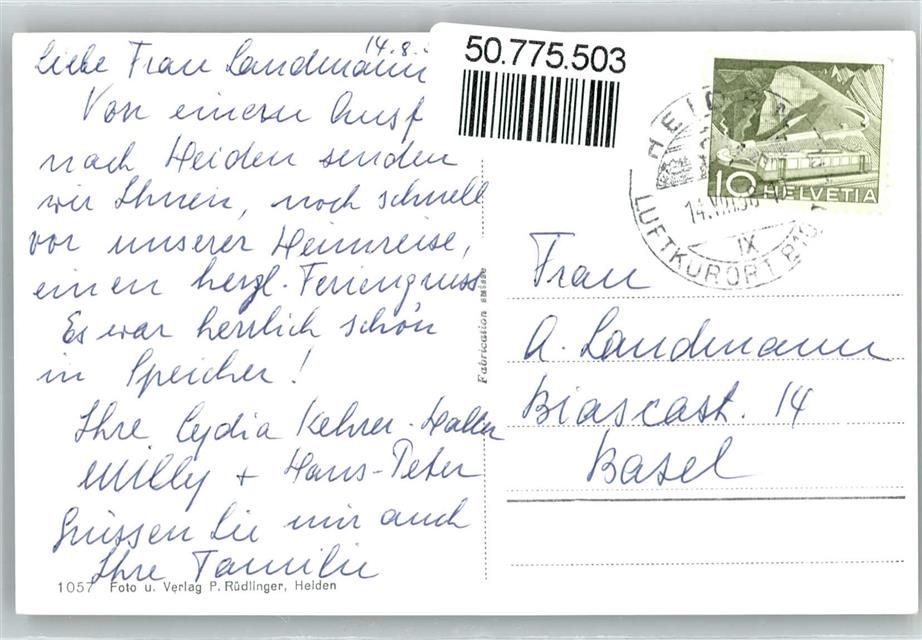 14.8.
Liebe Frau Landmann
Von einem Ausf
nach Heiden senden
wir Ihnen, noch schnell
vor unserer Heimreise,
einen herzl. Feriengruss
Es war herrlich schön
in Speicher!
Ihre Lydia Kehrer-Haller
Milly + Hans-Peter
Grüssen Sie mir auch
Ihre Familie
1057 Foto u. Verlag P. Rüdlinger, Heiden
Fabrication suisse
50.775.503
10 HELVETIA
HEIDEN
14.VIII.56
IX
LUFTKURORT
Frau
A. Landmann
Biascast. 14
Basel